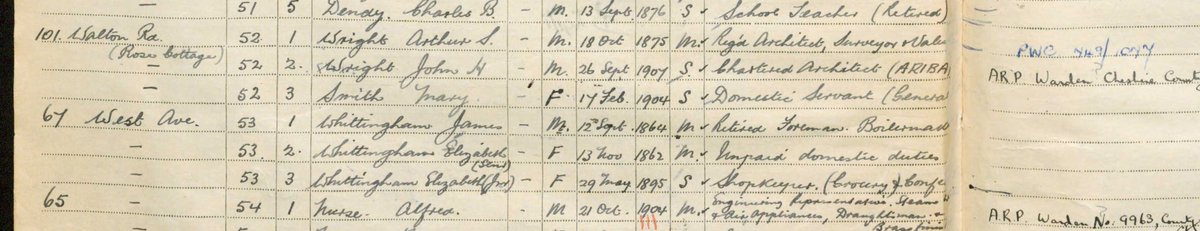 — 51 5 Dendy. Charles B. — M. 13 Sept 1876 S School Teacher (Retired)
101. Walton Rd. 52 1 Wright Arthur S. — M. 18 Oct 1875 M. Reg'd Architect, Surveyor & Value
(Rose Cottage) PWC
— 52 2. Wright John H — M. 26 Sept 1907 S Chartered Architect (ARIBA A.R.P. Warden Cheshire County
— 52 3 Smith Mary. — F. 17 Feb. 1904 S Domestic Servant (Genera
67 West Ave. 53 1 Whittingham James — M. 12 Sept. 1864 M Retired Foreman. Boilerma
— 53. 2. Whittingham Elizabeth — F 13 Nov 1862 M. Unpaid domestic duties
(Senr)
— 53 3 Whittingham Elizabeth (Jnr) — F 29 May 1895 S Shopkeeper. (Grocery & Confe
65 — 54 1 Nurse. Alfred. — M 21 Oct. 1904 M. Engineering Representative. Steam
& Air Appliances, Draughtsman. A.R.P. Warden No. 9963, County